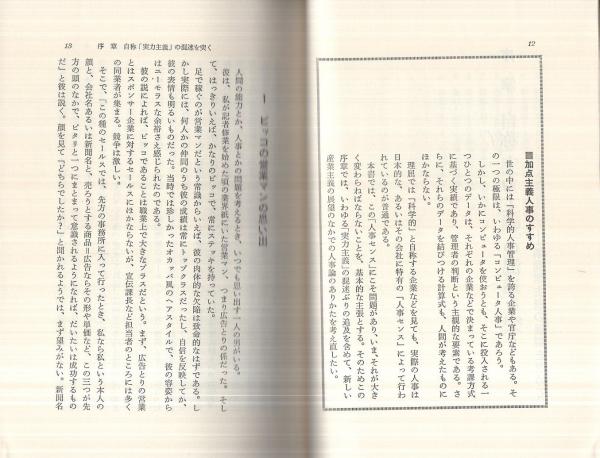 12
■加点主義人事のすすめ
世の中には「科学的人事管理」を誇る企業や官庁などもある。そ
の一つの極限は、いわゆる「コンピュータ人事」であろう。
しかし、いかにコンピュータを使おうとも、そこに投入される一
つひとつのデータは、それぞれの企業などで決まっている考課方式
に基づく実績であり、管理者の判断という主観的な要素である。さ
らに、それらのデータを結びつける計算式も、人間が考えたものに
ほかならない。
理屈では「科学的」と自称する企業などを見ても、実際の人事は
日本的な、あるいはその会社に特有の「人事センス」によって行わ
れているのが普通である。
本書では、この「人事センス」にこそ問題があり、いま、それが大き
く変わらねばならないことを、基本的な主張とする。そのためこの
序章では、いわゆる「実力主義」の混迷ぶりの追及を含めて、新しい
産業主義の展望のなかでの人事論のありかたを考え直したい。
13　序章　自称「実力主義」の混迷を突く
1　ビッコの営業マンの思い出
人間の能力とか、人事とかの問題を考えるとき、いつでも思い出す一人の男がいる。
彼は、私が記者修業を始めた頃の業界紙にいた営業マン、つまり広告とりの係だった。そし
て、はっきりいえば、かなりのビッコで、常にステッキを持っていた。
足で稼ぐのが営業マンだという常識からいえば、彼の肉体的な欠陥は致命的なはずである。し
かし実際には、何人かの仲間のうち彼の成績は常にトップクラスだったし、自信を反映してか、
彼の表情も明るいものだった。当時では珍しかったオカッパ風のヘアスタイルで、彼の容姿から
はユーモラスな余裕さえ感じられたのである。
彼の説によれば、ビッコであることは職業上で大きなプラスだという。まず、広告とりの営業
とはスポンサー企業に対するセールスにほかならないが、宣伝課長など担当者のところには多く
の同業者が集まる。競争は激しい。
そこで、「この種のセールスでは、先方の事務所に入って行ったとき、私なら私という本人の
顔と、会社名あるいは新聞名と、売ろうとする商品＝広告ならその形や単価など、この三つが先
方の頭のなかで、ピタリと一つにまとまって意識されるようになれば、だいたいは成功するもの
だ」と彼は説く。顔を見て「どちらでしたか？」と聞かれるようでは、まず望みがない。新聞名